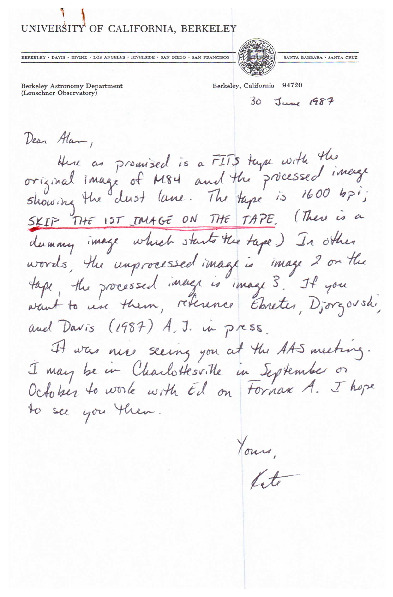 UNIVERSITY OF CALIFORNIA, BERKELEY
BERKELEY · DAVIS · IRVINE · LOS ANGELES · RIVERSIDE · SAN DIEGO · SAN FRANCISCO
SANTA BARBARA · SANTA CRUZ
Berkeley Astronomy Department
(Leuschner Observatory)
Berkeley, California 94720
30 June 1987
Dear Alan,
Here as promised is a FITS tape with the
original image of M84 and the processed image
showing the dust lane. The tape is 1600 bpi;
SKIP THE 1ST IMAGE ON THE TAPE. (There is a
dummy image which starts the tape) In other
words, the unprocessed image is image 2 on the
tape, the processed image is image 3. If you
want to use them, reference Ebneter, Djorgovski,
and Davis (1987) A.J. in press.
It was nice seeing you at the AAS meeting.
I may be in Charlottesville in September or
October to work with Ed on Fornax A. I hope
to see you then.
Yours,
Kate